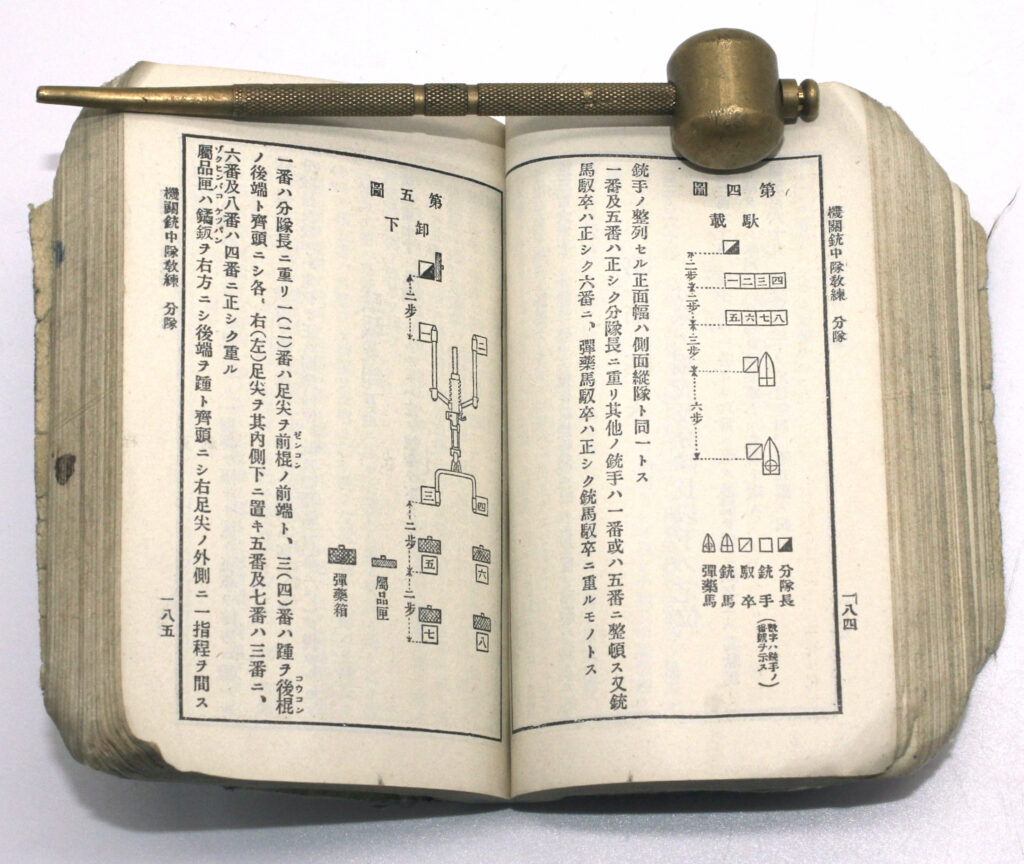 機關銃中隊敎練　分隊
一八四
第四圖
馱載
二步
二步
三步
六步
一二三四
五六七八
分隊長
銃手（數字ハ銃手ノ番號ヲ示ス）
馭卒
銃馬
彈藥馬
銃手ノ整列セル正面幅ハ側面縱隊ト同一トス
一番及五番ハ正シク分隊長ニ重リ其他ノ銃手ハ一番或ハ五番ニ整頓ス又銃
馬馭卒ハ正シク六番ニ、彈藥馬馭卒ハ正シク銃馬馭卒ニ重ルモノトス
第五圖
卸下
二步
一
二
三
四
二步
五
六
二步
七
八
屬品匣
彈藥箱
一番ハ分隊長ニ重リ一(二)番ハ足尖ヲ前棍ノ前端ト、三(四)番ハ踵ヲ後棍
ゼンコン
コウコン
ノ後端ト齊頭ニシ各〻右(左)足尖ヲ其內側下ニ置キ五番及七番ハ三番ニ、
六番及八番ハ四番ニ正シク重ル
屬品匣ハ鐍鈑ヲ右方ニシ後端ヲ踵ト齊頭ニシ右足尖ノ外側ニ一指程ヲ間ス
ゾクヒンバコ ケツパン
機關銃中隊敎練　分隊
一八五